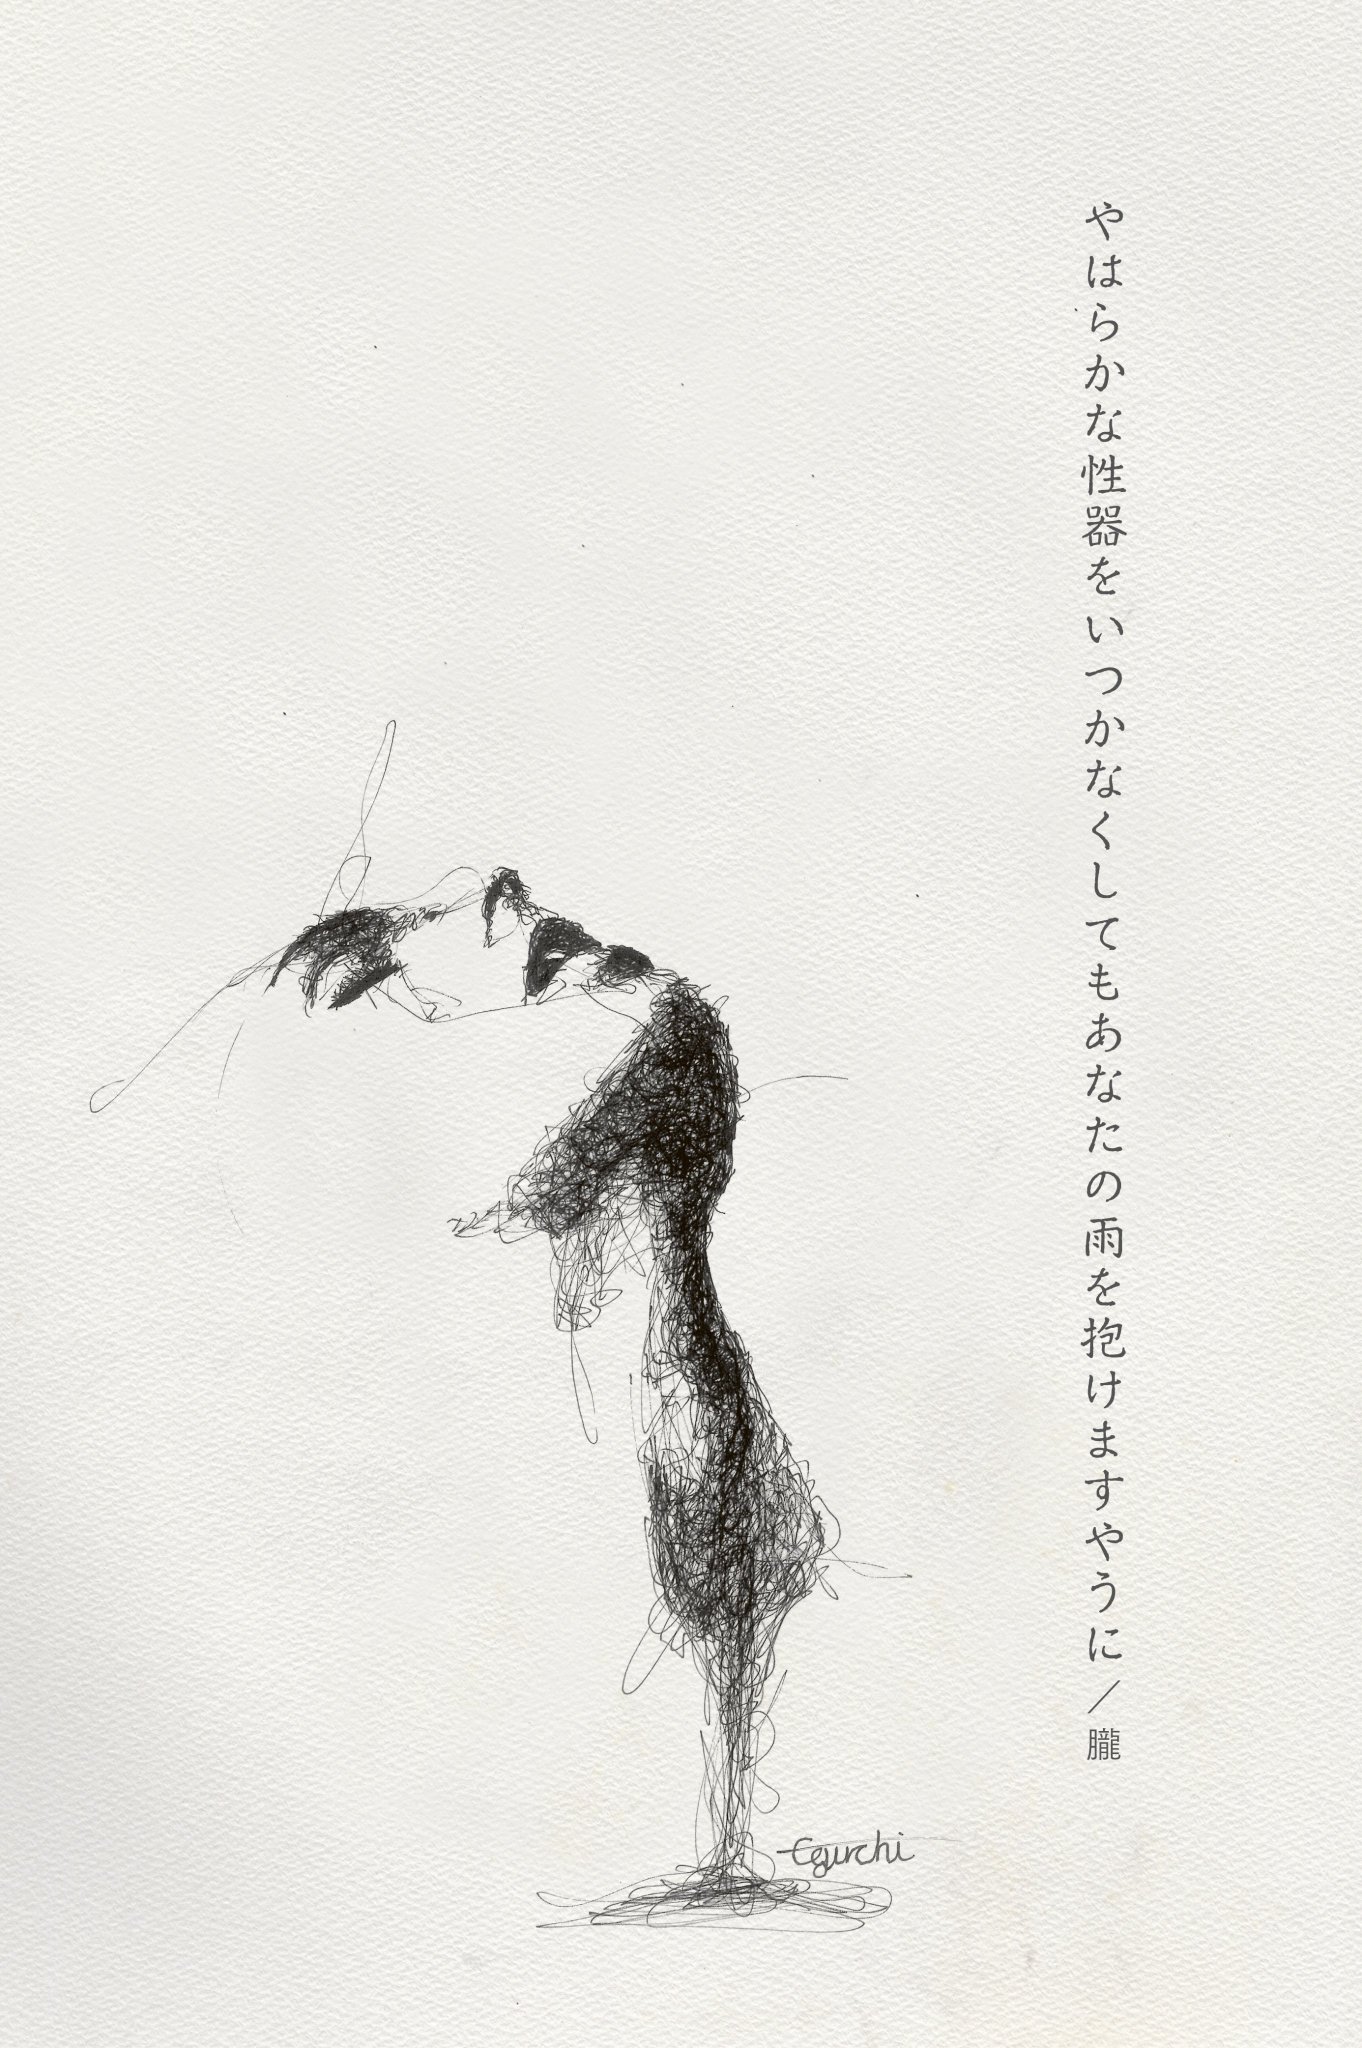 やはらかな性器をいつかなくしてもあなたの雨を抱けますやうに／朧